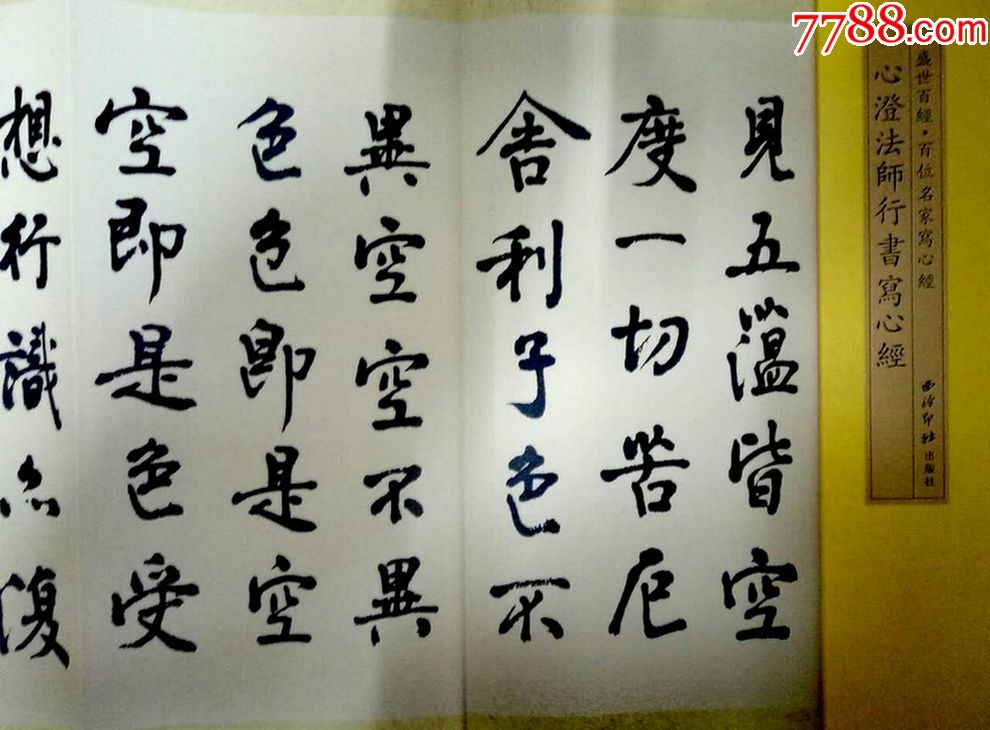 7788.com
盛世百經·百位名家寫心經
心澄法師行書寫心經
西泠印社出版社
見五蕰皆空
度一切苦厄
舍利子色不
異空空不異
色色即是空
空即是色受
想行識亦復